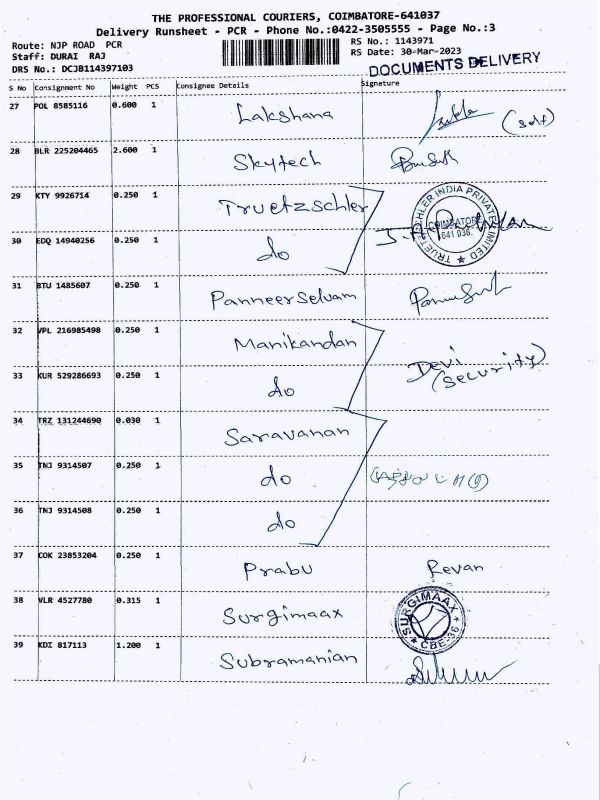 THE PROFESSIONAL COURIERS, COIMBATORE-641037
Delivery Runsheet - PCR - Phone No.:0422-3505555 - Page No.:3
Route: NJP ROAD PCR RS No.: 1143971
Staff: DURAI RAJ RS Date: 30-Mar-2023
DRS No.: DCJB114397103 DOCUMENTS DELIVERY
S No Consignment No Weight PCS Consignee Details Signature
27 POL 8585116 0.600 1 Lakshana (self)
28 BLR 225204465 2.600 1 Skytech
29 KTY 9926714 0.250 1 Truetzschler
TRUETZSCHLER INDIA PRIVATE LIMITED
COIMBATORE
641 036.
30 EDQ 14940256 0.250 1 do
31 BTU 1485607 0.250 1 Panneerselvam
32 VPL 216985498 0.250 1 Manikandan
Devi
(security)
33 KUR 529286693 0.250 1 do
34 TRZ 131244690 0.030 1 Saravanan
35 TNJ 9314507 0.250 1 do
36 TNJ 9314508 0.250 1 do
37 COK 23853204 0.250 1 Prabu Revan
38 VLR 4527780 0.315 1 Surgimaax
SURGIMAAX
CBE-36
39 KDI 817113 1.200 1 Subramanian